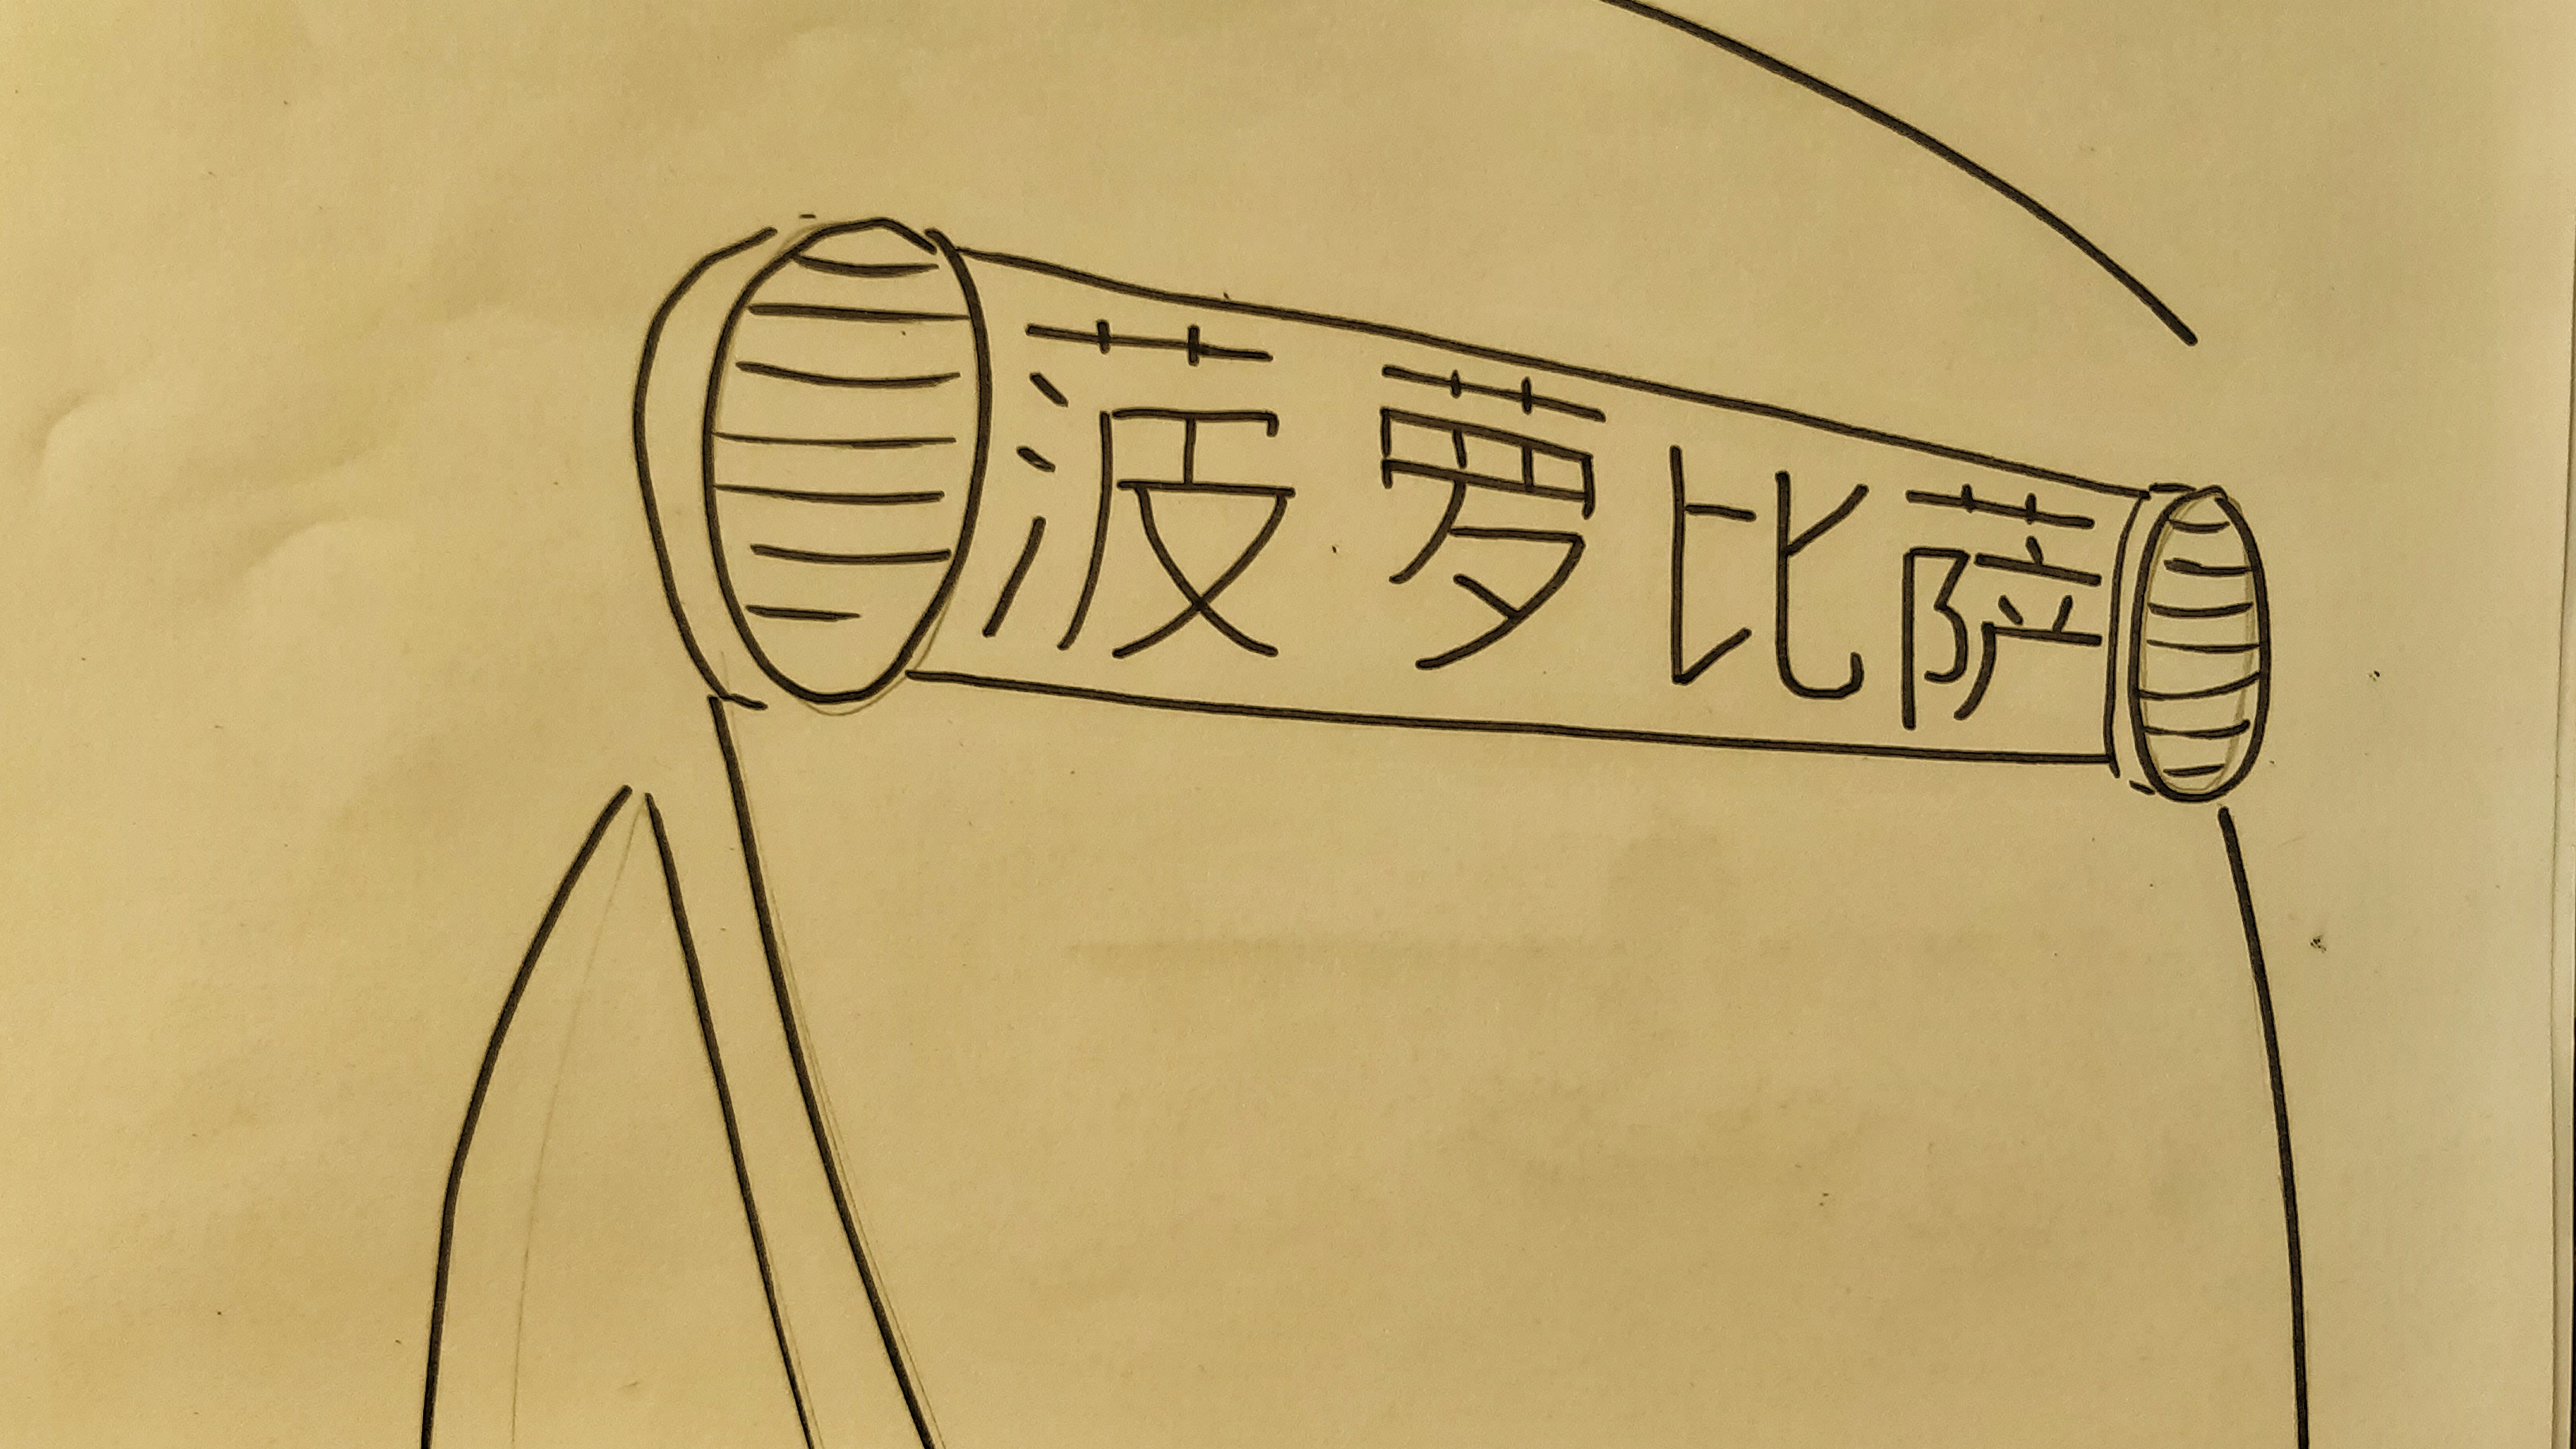 菠萝比萨